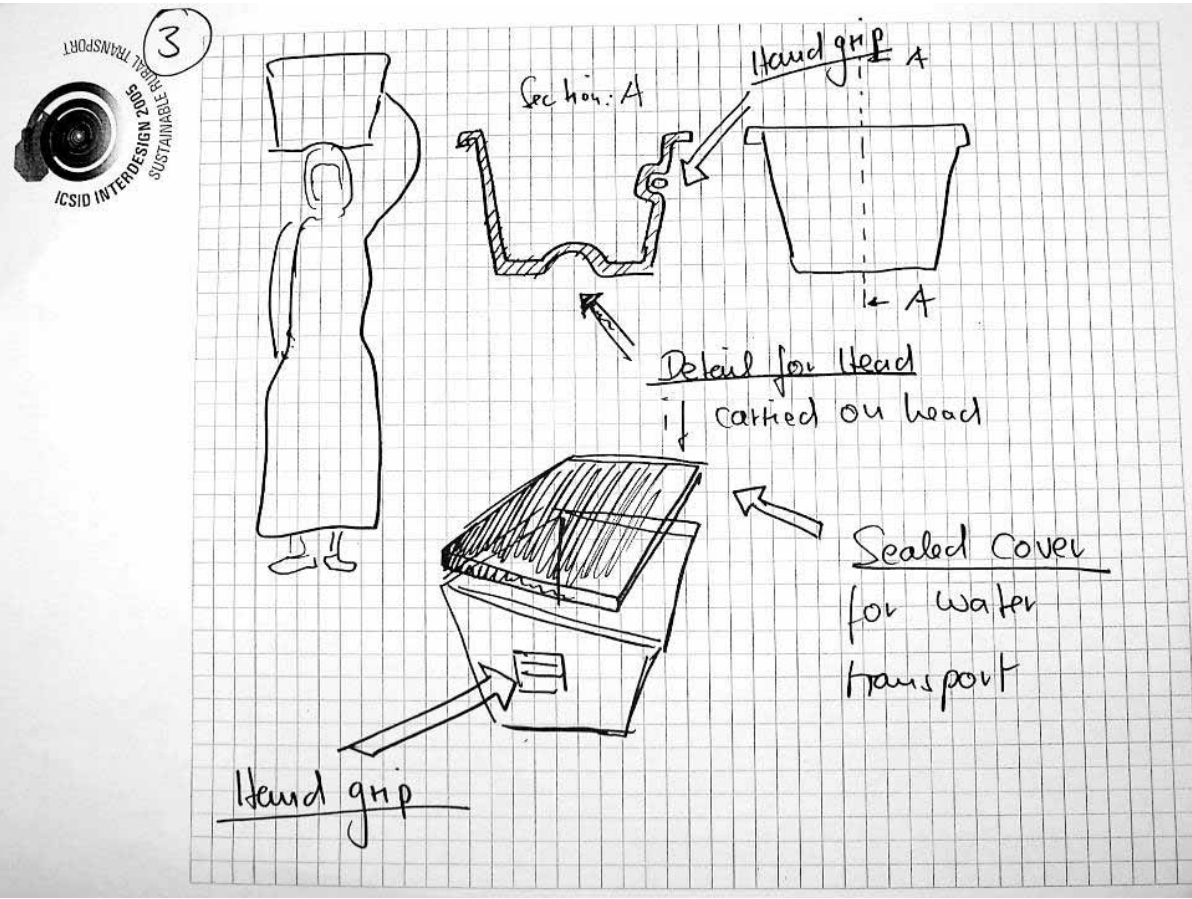 3
ICSID INTERDESIGN 2005
SUSTAINABLE RURAL TRANSPORT
Section: A
Hand grip
A
A
Detail for Head
if carried on head
Sealed Cover
for water
transport
Hand grip